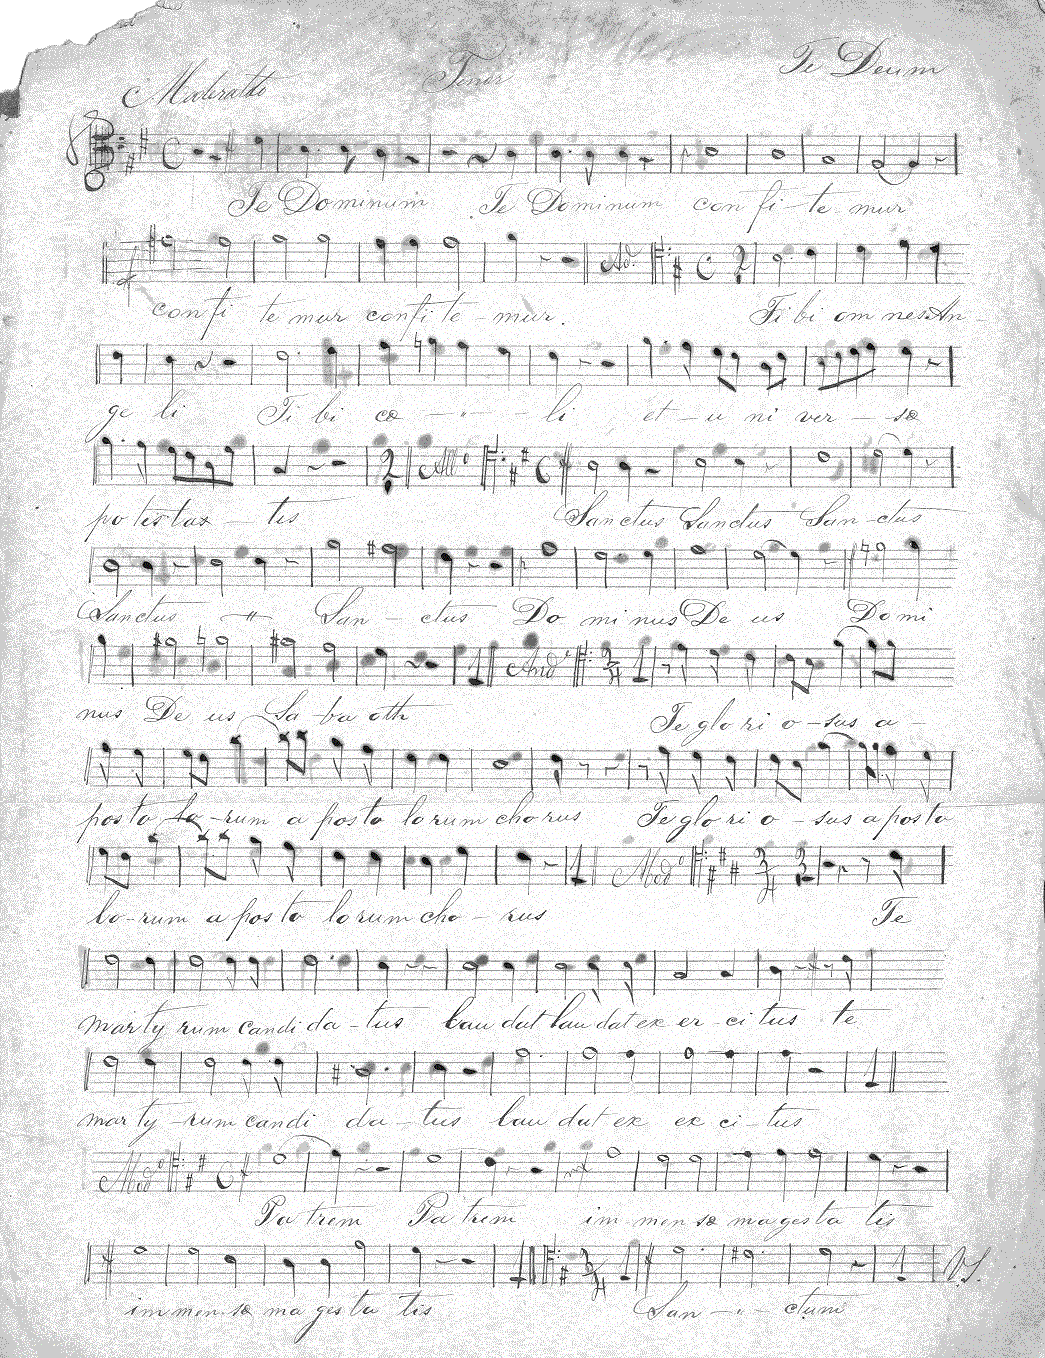 Te Deum
Tenor
Moderatto
Te Dominum Te Dominum con fi-te-mur
confi te mur confi te-mur.
Ad.º
Ti bi om nes An-
ge li Ti bi cœ - " - li et-u ni ver-sæ
po tes tax - tis
All º
Sanctus Sanctus San-ctus
Sanctus - " San-ctus Do mi nus De us Domi
nus De us Sa-ba oth
And e
Te glo ri o-sus a-
posto lo-rum a posto lorum chorus Te glo ri o-sus a posto
lo-rum a posto lorum cho-rus
Mod º
Te
marty rum candi da-tus lau dat lau dat ex er-ci tus te
mar ty-rum candi da-tus lau dat ex ex ci-tus
Mod º
Pa trem Pa trem im men sæ ma ges ta tis
im men-sæ ma ges ta tis San - " - ctum
V.S.